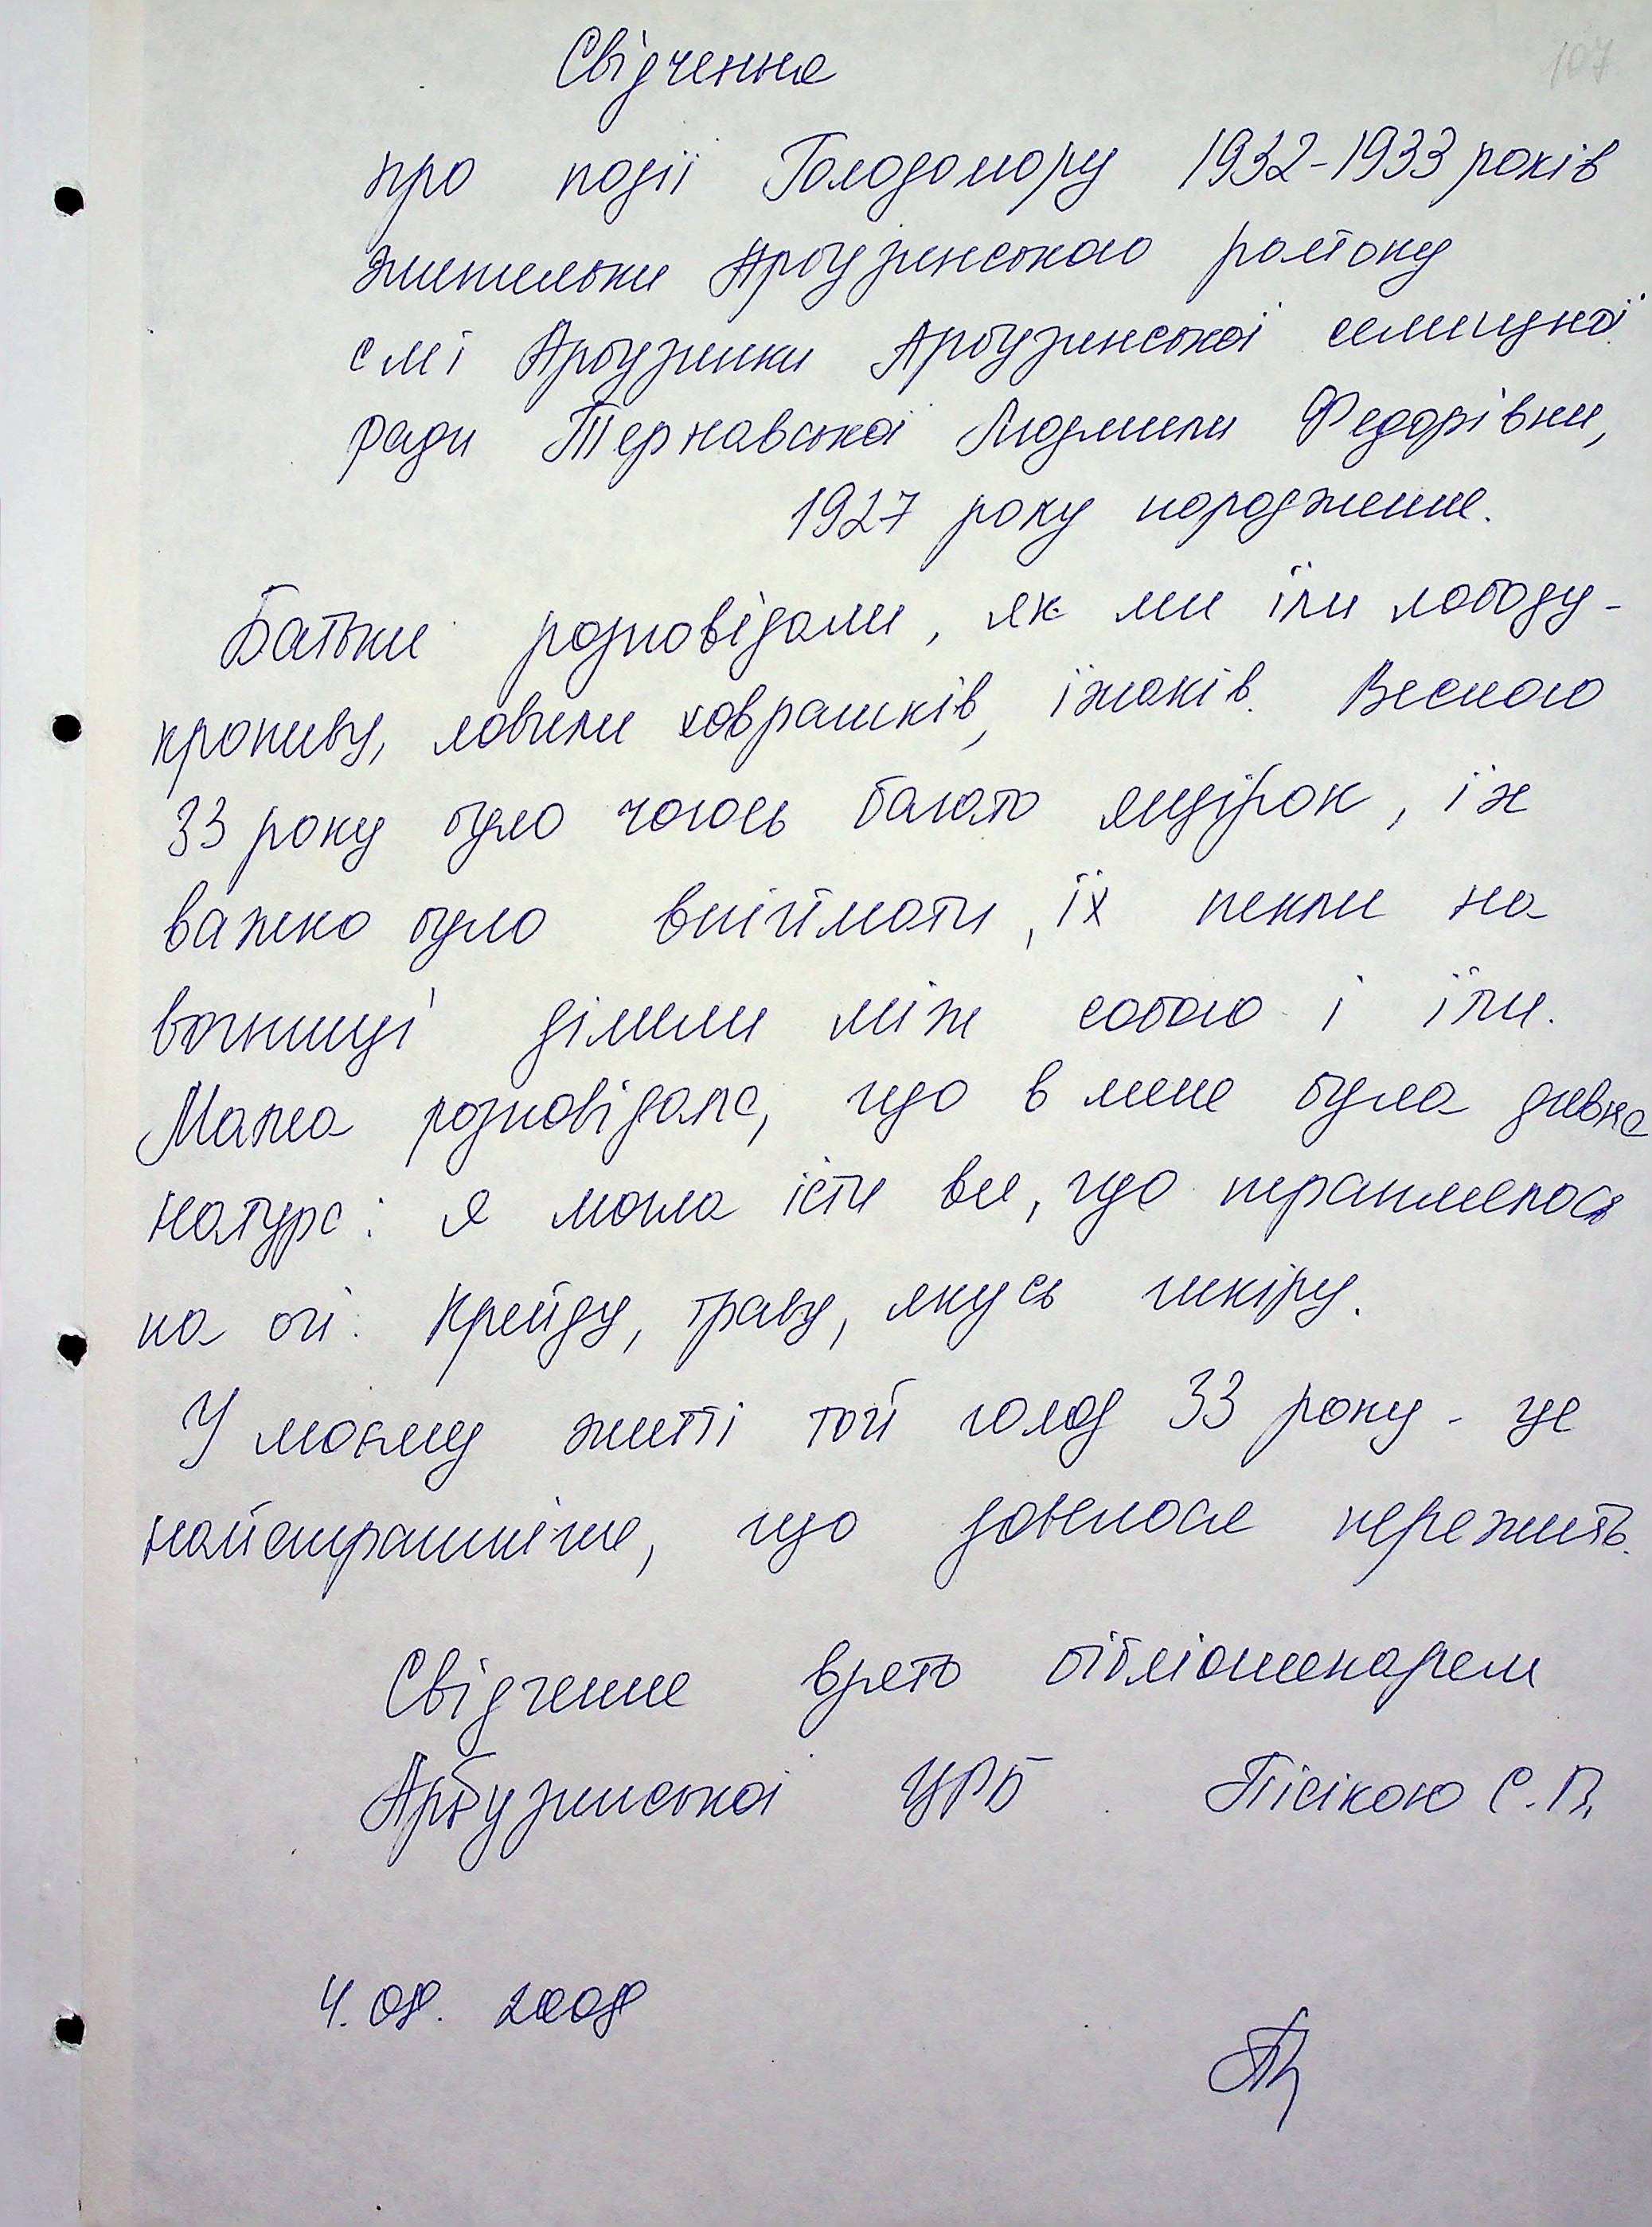 107
Свідчення
про події Голодомору 1932-1933 років
жительки Арбузинського району
смт Арбузинки Арбузинської селищної
ради Тернавської Людмили Федорівни,
1927 року народження.
Батьки розповідали, як ми їли лободу-
кропиву, ловили ховрашків, їжаків. Весною
33 року було чогось багато ящірок, їх
важко було впіймати, їх пекли на
вогнищі ділили між собою і їли.
Мама розповідала, що в мене була дивна
натура: я могла їсти все, що траплялося
на очі. Крейду, траву, якусь шкіру.
У моєму житті той голод 33 року - це
найстрашніше, що довелося пережить.
Свідчення взято бібліотекарем
Арбузинської ЦРБ Пісікою С.В.
4.08.2008